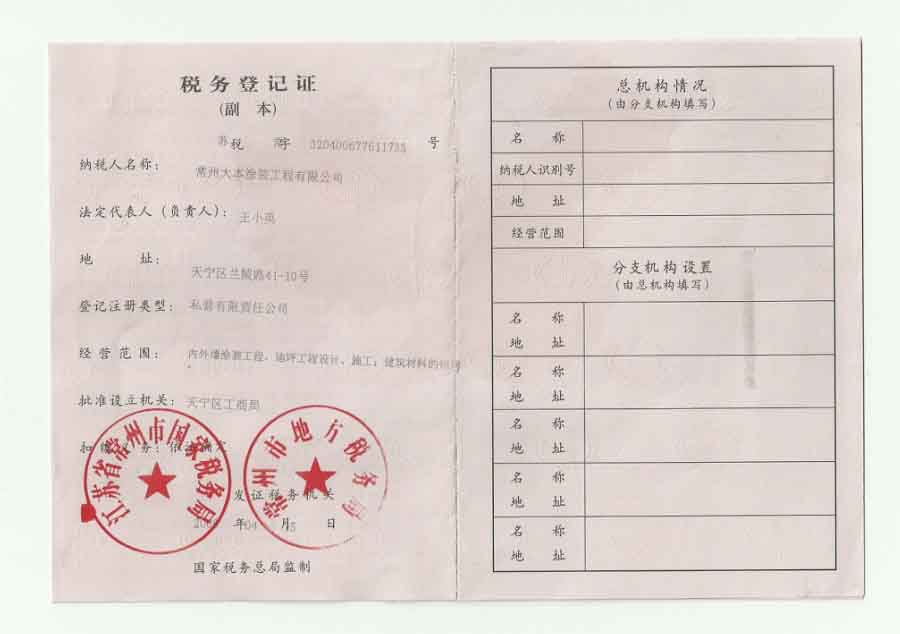 税务登记证
(副 本)
苏 税 字 320400677611733 号
纳税人名称：
常州大本涂装工程有限公司
法定代表人（负责人）：
王小英
地 址：
天宁区兰陵路41-10号
登记注册类型： 私营有限责任公司
经营范围： 内外墙涂装工程、地坪工程设计、施工；建筑材料的
批准设立机关： 天宁区工商局
扣缴义务：依法
江苏省常州市国家税务局
常州市地方税务局
发证税务机关
年 04 月 日
国家税务总局监制
总机构情况
(由分支机构填写)
名 称
纳税人识别号
地 址
经营范围
分支机构设置
(由总机构填写)
名 称
地 址
名 称
地 址
名 称
地 址
名 称
地 址
名 称
地 址